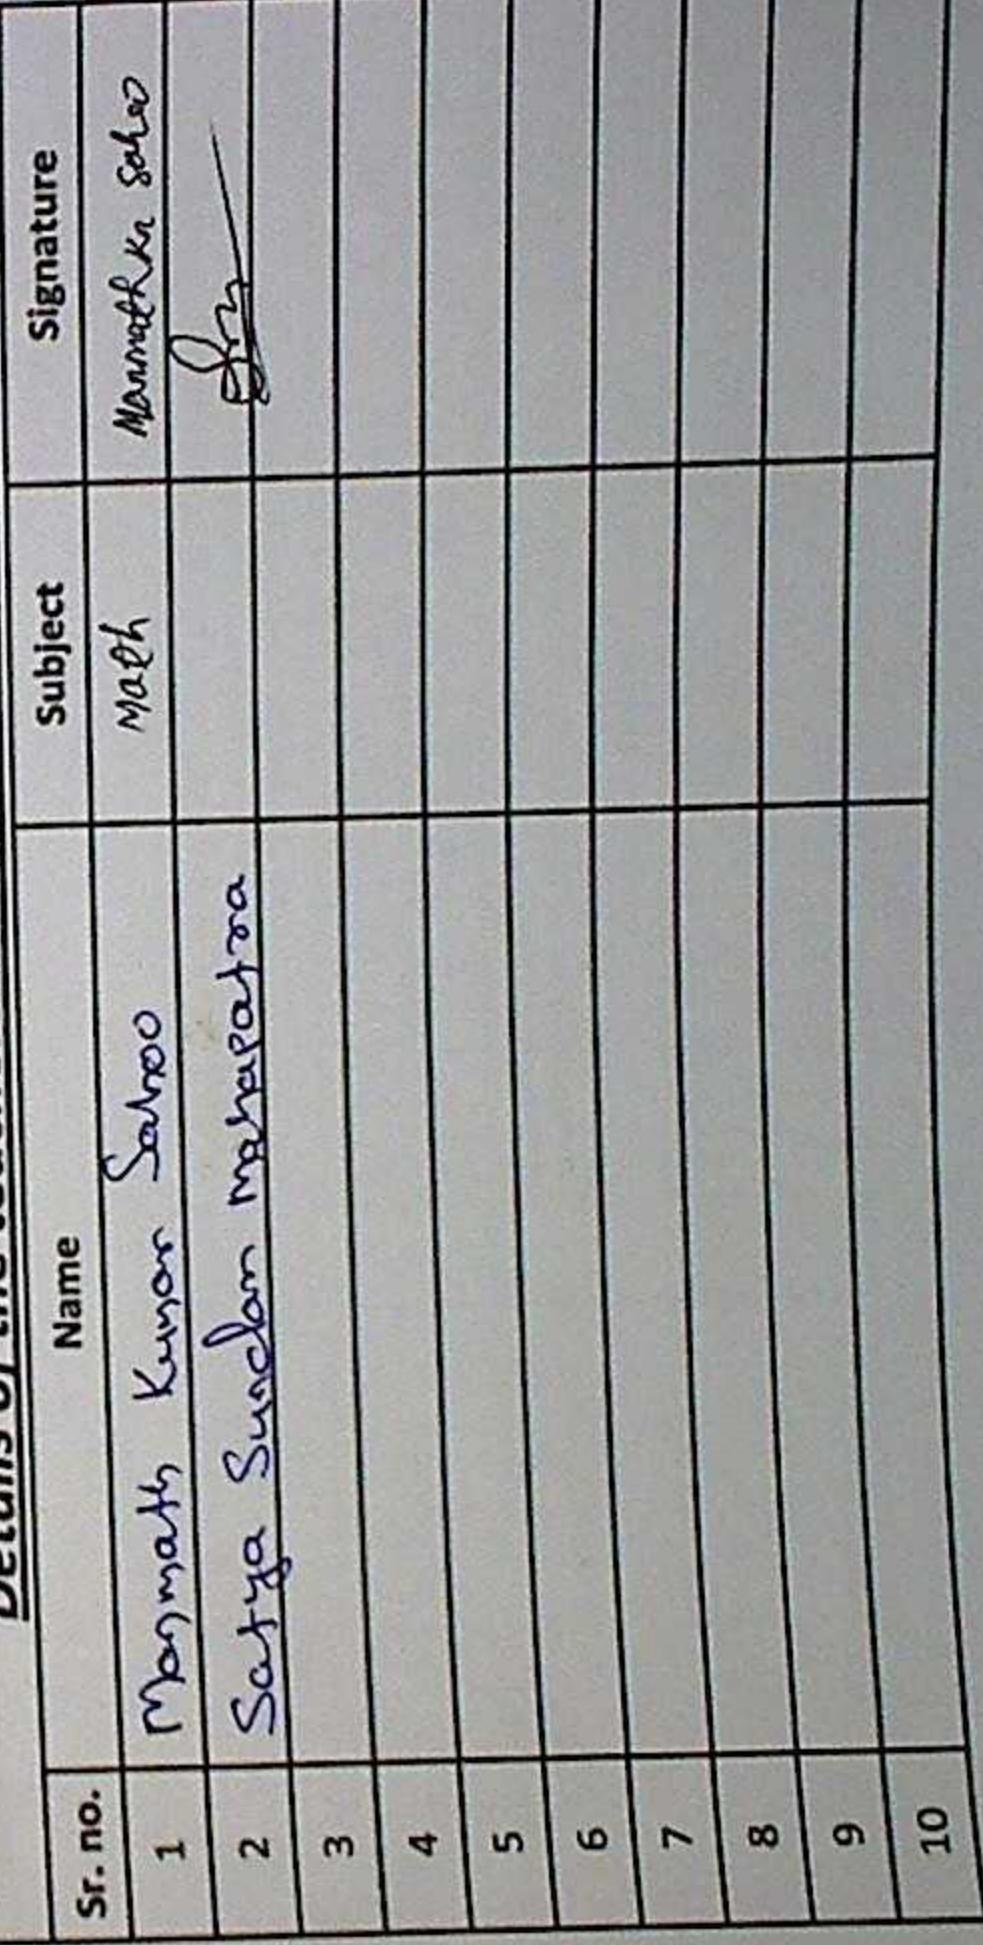 Details of the
Sr. no. Name Subject Signature
1 Manmath Kumar Sahoo Math Manmath Kr Sahoo
2 Satya Sundam mahapatra
3
4
5
6
7
8
9
10